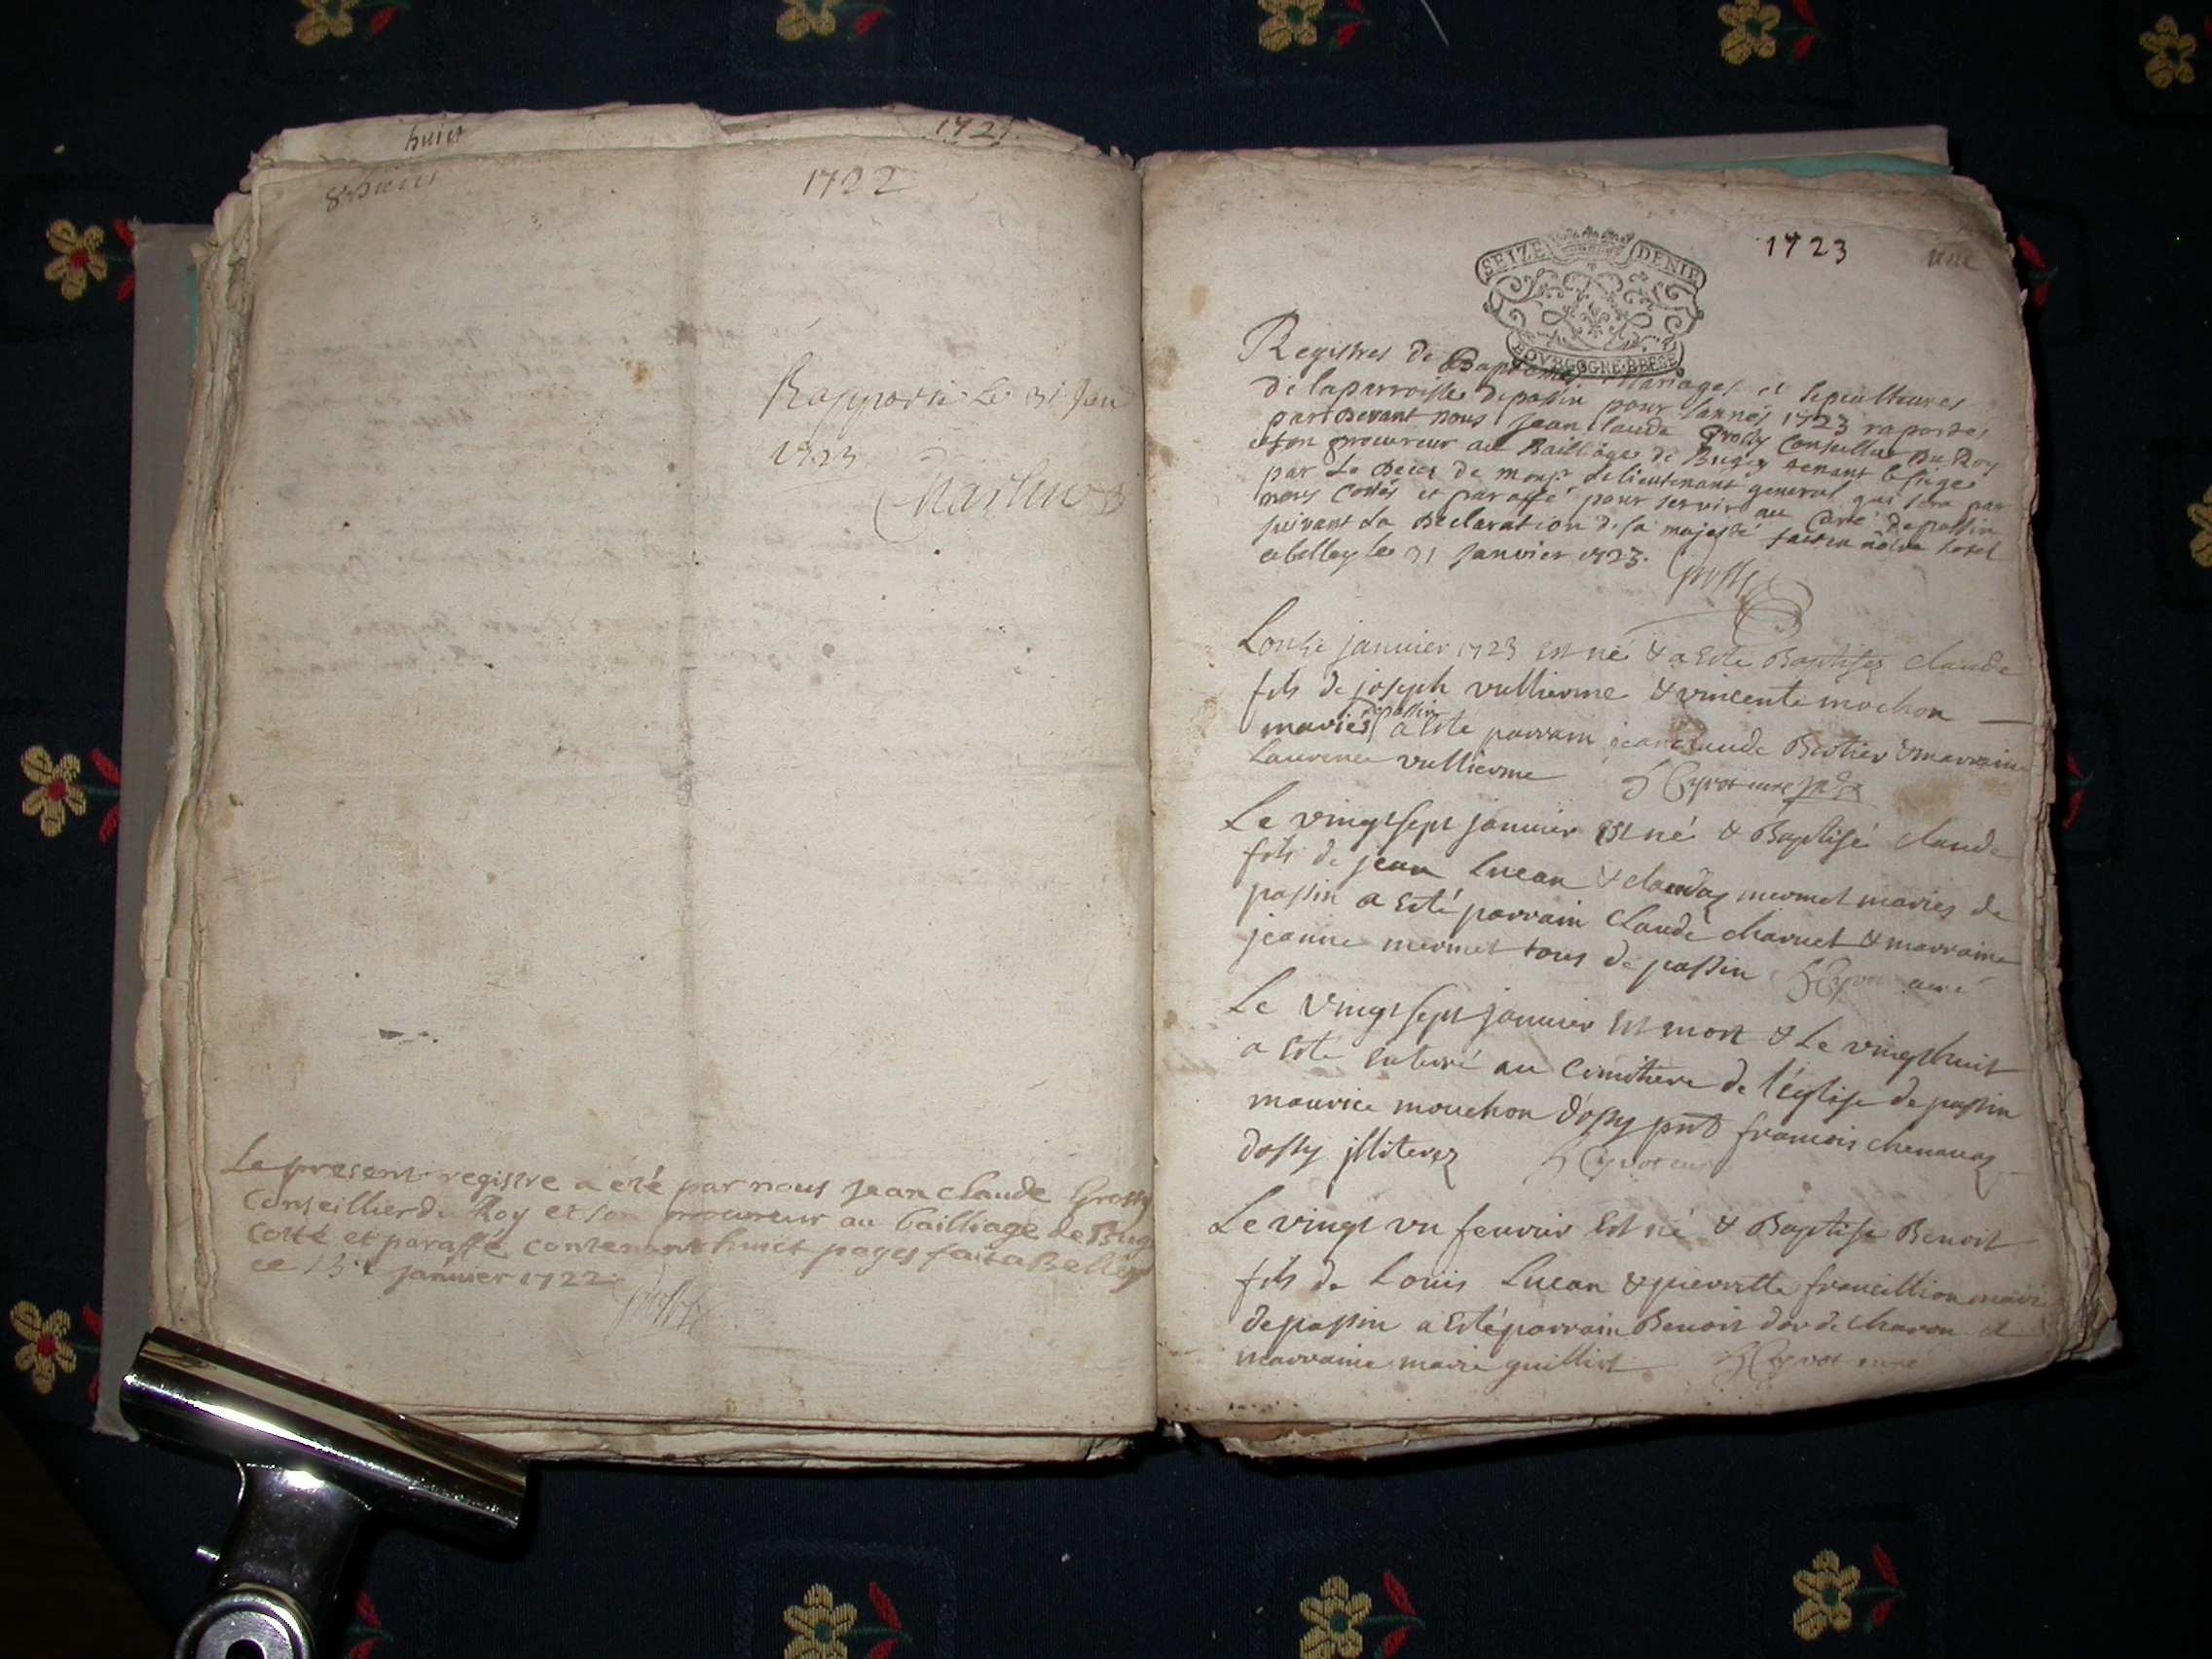 huict
1721
8 huict
1722
Rapporté Le 31 Jan
1723
Le present registre a eté par nous Jean claude Grossy
Conseillier du Roy et son procureur au bailliage de Bug
cotté et paraffé contenant huict pages fait a Belley
ce 13e janvier 1722
1723
une
SEIZE DENIE
BOVRGOGNE BRESE
Registres de Baptemes Mariages et sepultures
de la parroisse de passin pour lannée 1723 raportés
pardevant nous Jean claude Grossy Conseiller Du Roy
et son procureur au Bailliage de Bugey tenant le siege
par Le Deces de monsr. le lieutenant general qui sera par
nous Cottés et paraffé pour servir au Curé de passin
suivant La Declaration de sa majesté fait en nôtre hotel
a belley le 31 Janvier 1723.
Grossy
Lonze janvier 1723 est né & a este Baptisez claude
fils de joseph vullierme & vincente mochon
de passin
mariés a este parrain jean claude Bertier & marraine
Laurence vullierme curé
Le vingt sept janvier est né & Baptisé claude
fils de jean Lucan & clauda mermet maries de
passin a esté parrain Claude charvet & marraine
jeanne mermet tous de passin curé
Le vingt sept janvier est mort & Le vingt huit
a esté enterré au cimitiere de l'église de passin
maurice mouchon d'ossy pnt francois chenavaz
dossy jlliterez
Le vingt vn feurier est né & Baptise Benoit
fils de Loüis Lucan & pierrette francillion marié
de passin a esté parrain Benoit dor de charon et
marraine marie guilliot curé